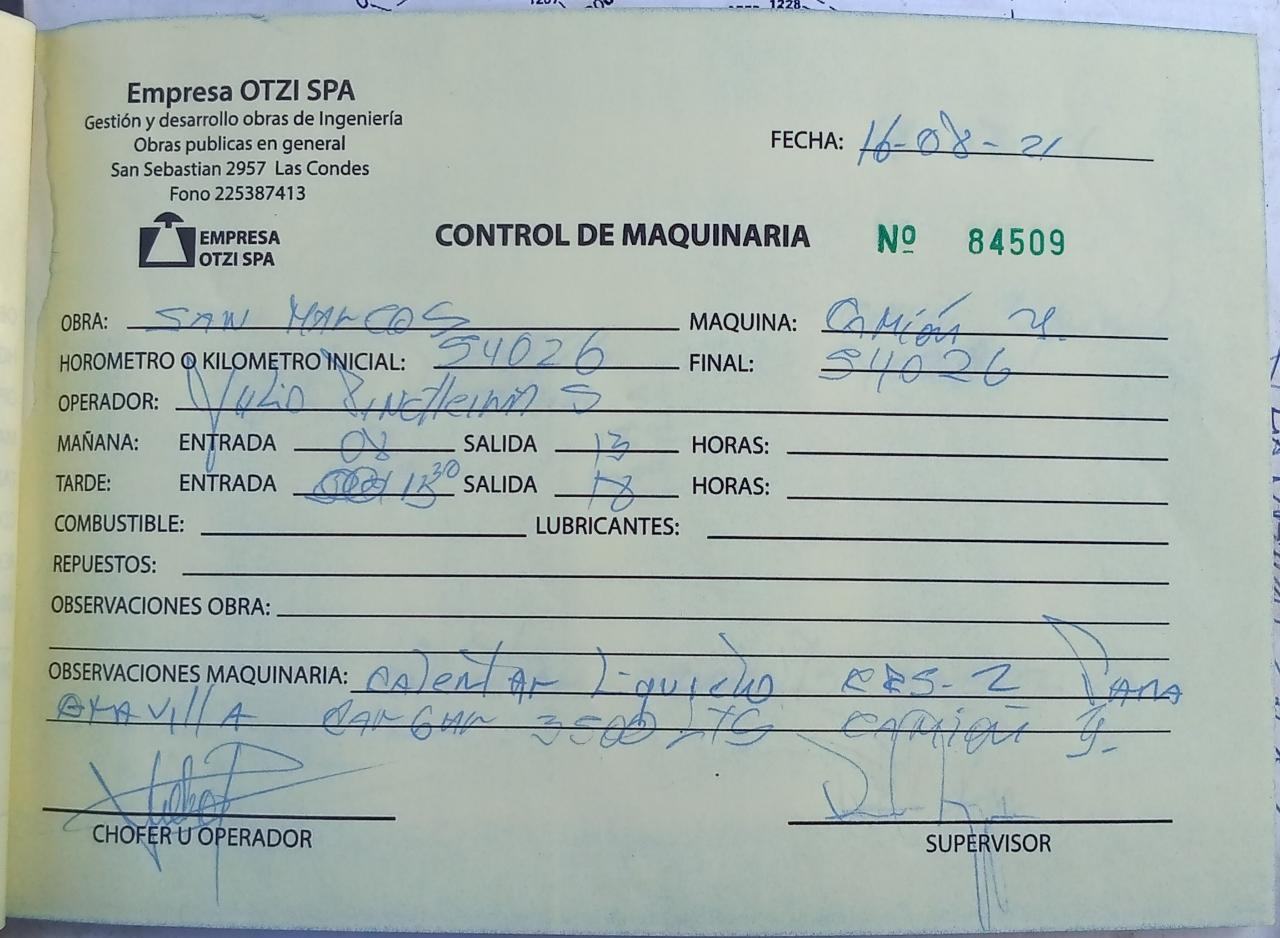 1228
Empresa OTZI SPA
Gestión y desarrollo obras de Ingeniería
Obras publicas en general
San Sebastian 2957 Las Condes
Fono 225387413
FECHA: 16-08-21
EMPRESA
OTZI SPA
CONTROL DE MAQUINARIA Nº 84509
OBRA: SAN MARCOS MAQUINA: Camión
HOROMETRO O KILOMETRO INICIAL: 54026 FINAL: 54026
OPERADOR: Julio S
MAÑANA: ENTRADA 08 SALIDA 13 HORAS:
TARDE: ENTRADA 13 30 SALIDA 18 HORAS:
COMBUSTIBLE: LUBRICANTES:
REPUESTOS:
OBSERVACIONES OBRA:
OBSERVACIONES MAQUINARIA: CAlentAr Liquido CRS-2 PARA
GRAVIllA CArGAr 3500 LTS CAMión
CHOFER U OPERADOR
SUPERVISOR